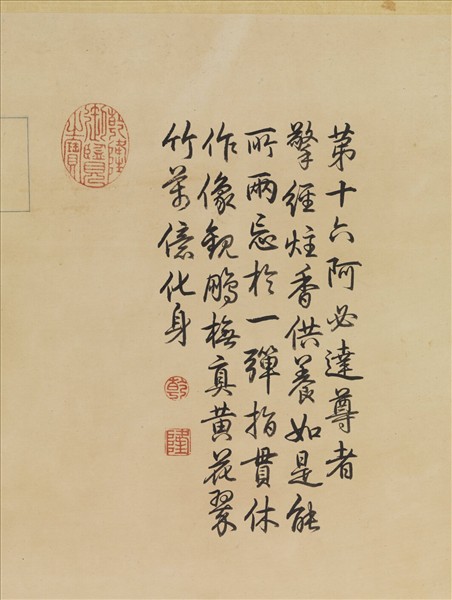 第十六阿必達尊者
擎經炷香供養如是能
所兩忘於一彈指貫休
作像觀鵬橅真黃花翠
竹萬億化身
乾
隆
乾隆御覽之寶